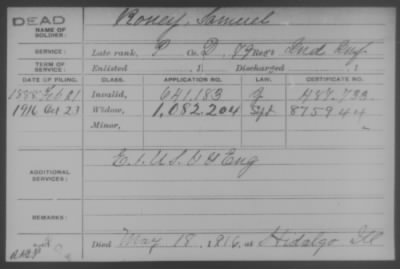 DEAD
NAME OF SOLDIER: Roney, Samuel
SERVICE: Late rank, P Co. D, 79 Reg't Ind. Inf.
TERM OF SERVICE: Enlisted , 1 Discharged , 1
DATE OF FILING. CLASS. APPLICATION NO. LAW. CERTIFICATE NO.
1888 Feb 21 Invalid, 641.183 487.733
1916 Oct 23 Widow, 1.082.204 Sept 815944
Minor,
ADDITIONAL SERVICES: E. 1. U.S. V. V. Eng
REMARKS:
Died May 18, 1816, at Hidalgo Ill